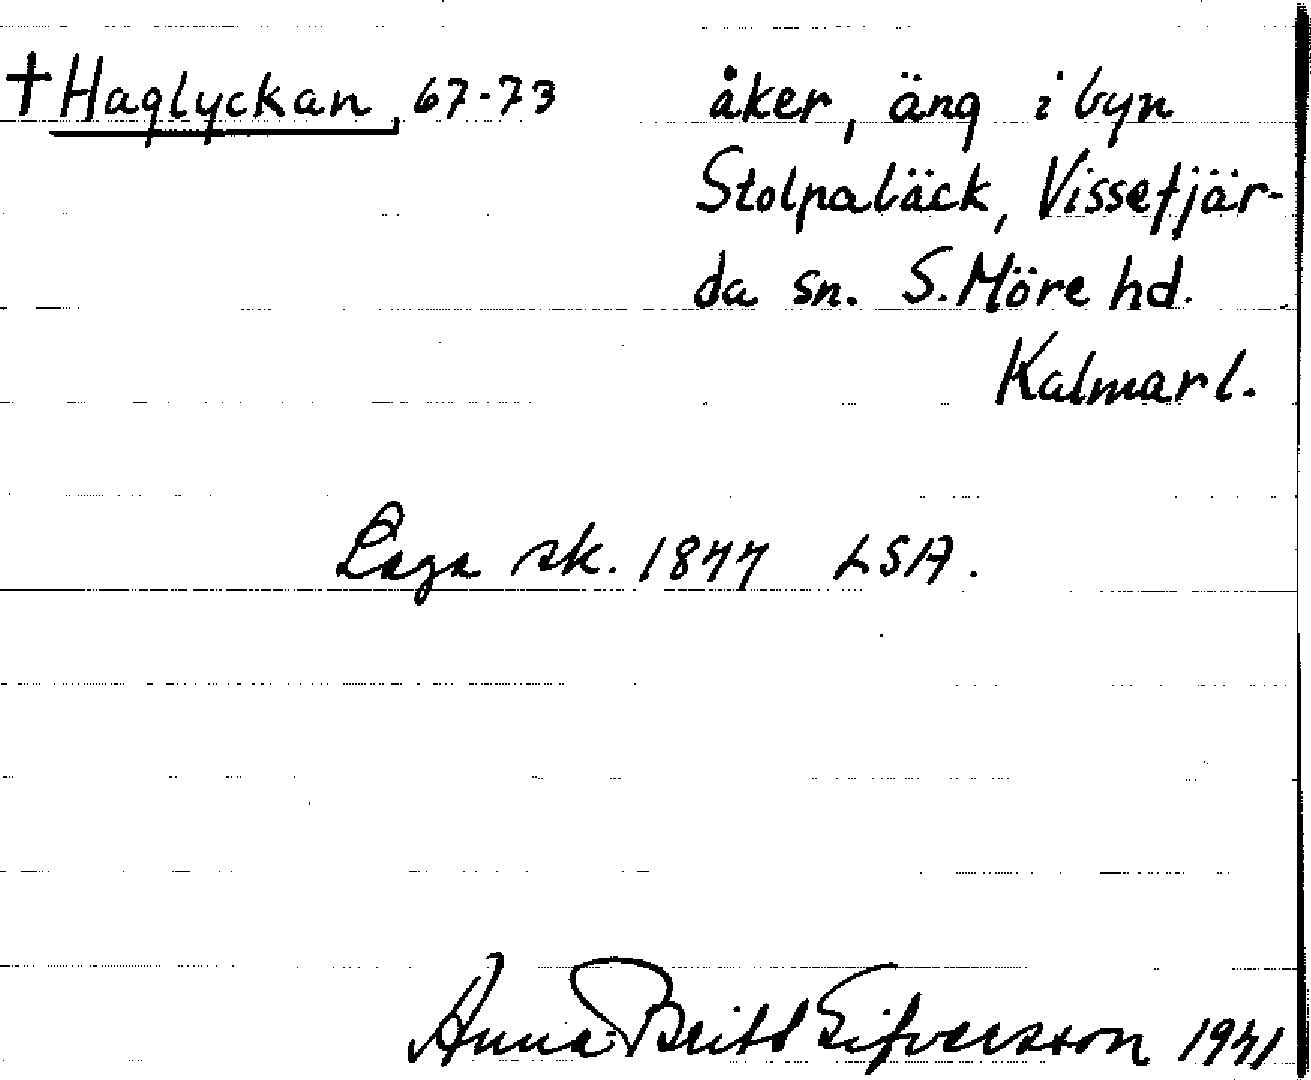 †Haglyckan, 67-73 åker, äng i byn
Stolpaläck, Vissefjär-
da sn. S. Möre hd.
Kalmar l.
Laga sk. 1877 LSA.
Anna-Britt Sifversson 1941